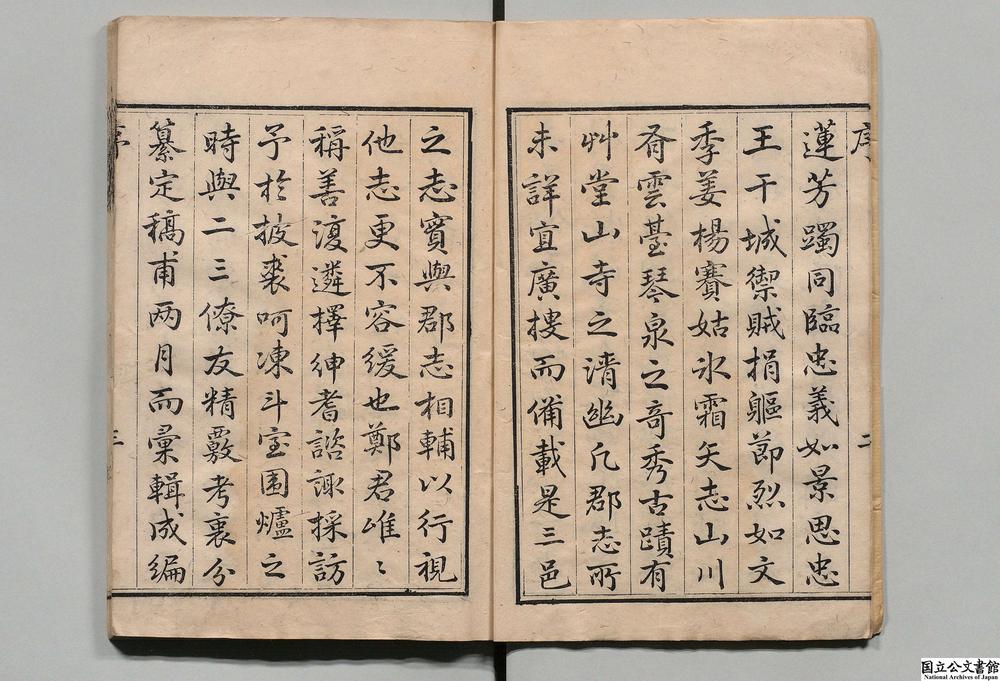 序
二
蓮芳躅同臨忠義如景思忠
王干城禦賊捐軀節烈如文
季姜楊賽姑氷霜矢志山川
有雲臺琴泉之奇秀古蹟有
艸堂山寺之清幽凡郡志所
未詳宜廣搜而備載是三邑
之志實與郡志相輔以行視
他志更不容緩也鄭君唯〻
稱善復遴擇紳耆諮諏採訪
予於披裘呵凍斗室围爐之
時與二三僚友精覈考衷分
纂定稿甫两月而彙輯成編
序
三
国立公文書館
National Archives of Japan